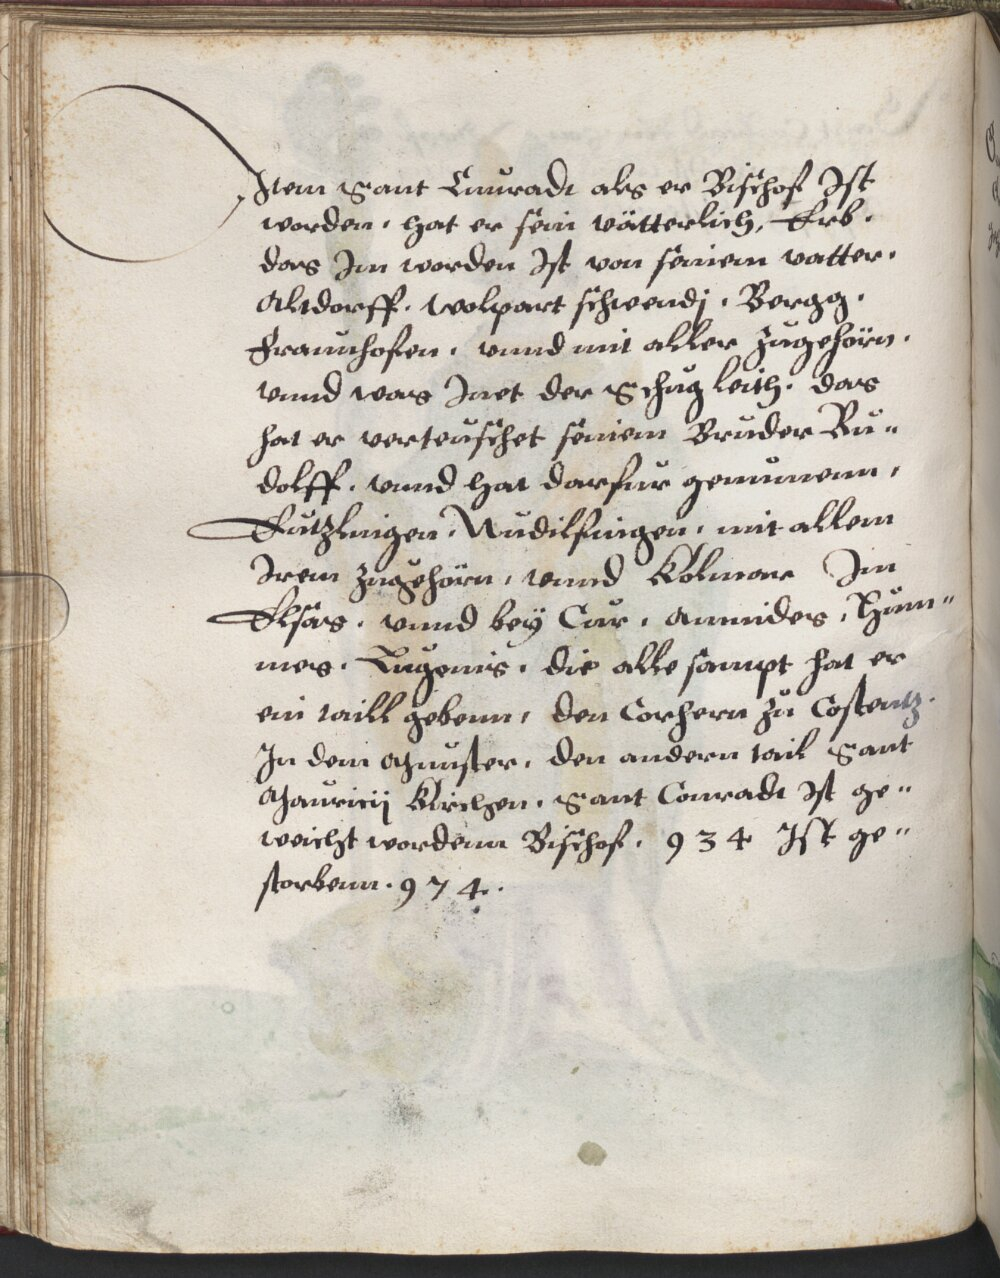 Item Sant Cuuradt als er Bischof Ist
worden, hat er sein vätterlich, Erb.
das Im worden Ist von seinem vatter.
Altdorff. wolpart schwendj. Bergg.
Fraunhofen. vnnd mit aller zugehörn.
vnnd was Inet der Schuz leith. das
hat er verteuschet seinem Bruder Ru"
dolff. vnnd hat darfur genumenn,
Eutzlingen, Audilfingen, mit allem
Irem zugehörn, vnnd Kolmar Im
Elsas. vnnd bey Cur, Ammides, Rüm"
mes. Lugenis. die alle sampt hat er
ein taill gebenn, den Corhern zu Costentz.
In dem Munster, den andern tail Sant
Mauricij Kirchen. Sant Conradt Ist ge"
weicht wordenn Bischof. 934 Ist ge"
storbenn. 974.